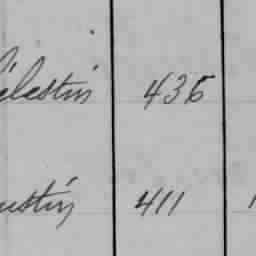 élestin 436
ustin 411 1